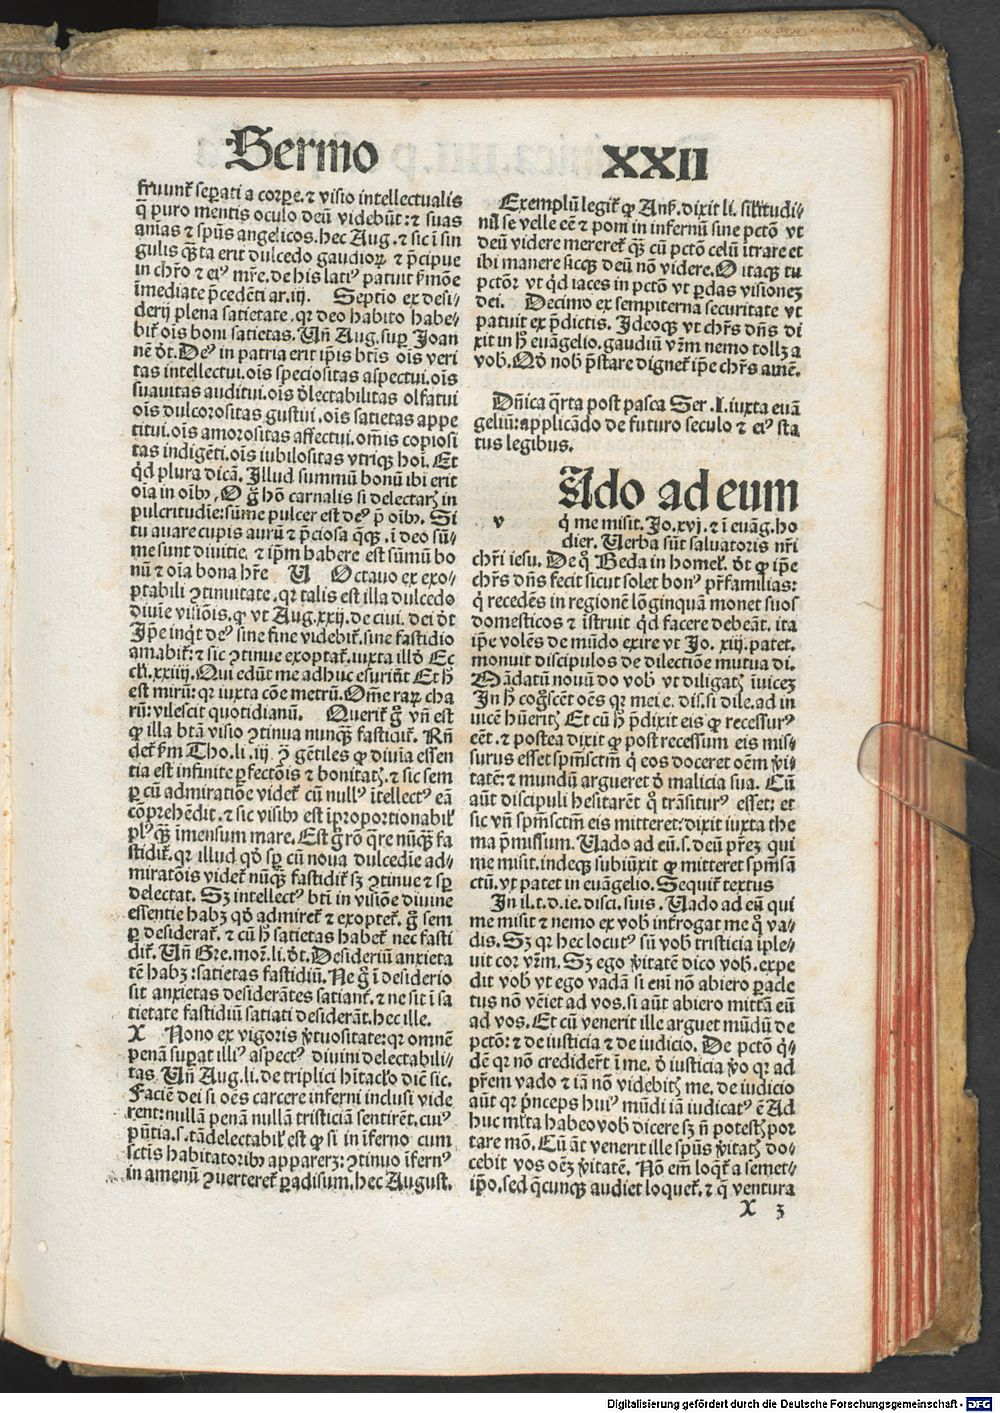 Sermo XXII
fruunt̉ seꝑati a corꝑe.⁊ visio intellectualis
q̄ puro mentis oculo deū videbūt:⁊ suas
aniās ⁊ spūs angelicos.hec Aug.⁊ sic ī sin
gulis qͣꝫta erit dulcedo gaudioꝝ ⁊ p̄cipue
in chr̄o ⁊ eiꝰ mr̄e.de his latiꝰ patuit ẜmōe
īmediate p̄cedēti ar.iij. Septio ex desi⸗
derij plena satietate.qꝛ deo habito habe⸗
bit̉ oīs boni satietas. Un̄ Aug.suꝑ Joan
nē dt̄. Deꝰ in patria erit ip̄is btīs oīs veri
tas intellectui.oīs speciositas aspectui.oīs
suauitas auditui.oīs delectabilitas olfatui
oīs dulcorositas gustui.oīs satietas appe
titui.oīs amorositas affectui.om̄is copiosi
tas indigēti.oīs iubilositas vtriqꝫ hoī. Et
qd plura dicā. Illud summū bonū ibi erit
oīa in oībꝰ. O g̊ hō carnalis si delectaris in
pulcritudīe:sūme pulcer est deꝰ p̄ oībꝰ. Si
tu auare cupis aurū ⁊ p̄ciosa qͣqꝫ. ī deo sū⸗
me sunt diuitie. ⁊ ip̄m habere est sūmū bo
nū ⁊ oīa bona hr̄e U Octauo ex exo⸗
ptabili ꝯtinuitate.qꝛ talis est illa dulcedo
diuīe visiōis.ꝙ vt Aug.xxij.de ciui. dei dt̄
Ip̄e inqͥt deꝰ sine fine videbit̉.sine fastidio
amabit̉:⁊ sic ꝯtinue exoptat̉.iuxta illd Ec
cli.xxiiij.Qui edūt me adhuc esuriūt Et h̄
est mirū:qꝛ iuxta cōe metrū.Om̄e raꝝ cha
rū:vilescit quotidianū. Querit̉ g̊ vn̄ est
ꝙ illa btā visio ꝯtinua nunqͣꝫ fastidit̉. Rn̄
det̉ ẜm Tho.li.iij ꝯ̄ gētiles ꝙ diuīa essen
tia est infinite ꝑfectōis ⁊ bonitatis.⁊ sic sem
ꝑ cū admiratiōe videt̉ cū nullꝰ ītellectꝰ eā
cōprehēdit.⁊ sic visibꝰ est īproportionabil̓
plꝰqͣꝫ īmensum mare. Est g̊ rō qͣre nūqͣꝫ fa
stidit̉.qꝛ illud qd sꝑ cū noua dulcedīe ad⸗
miratōis videt̉ nūqͣꝫ fastidit̉ sꝫ ꝯtinue ⁊ sꝑ
delectat. Sꝫ intellectꝰ btī in visiōe diuine
essentie habꝫ qd admiret̉ ⁊ exoptet̉. g̊ sem
ꝑ desiderat̉. ⁊ cū h̄ satietas habet̉ nec fasti
dit̉. Un̄ Gre.mor̄.li.dt̄.Desideriū anxieta
tē habꝫ:satietas fastidiū. Ne g̊ ī desiderio
sit anxietas desiderātes satiant̉.⁊ ne sit ī sa
tietate fastidiū satiati desiderāt.hec ille.
X Nono ex vigoris v̓tuositate:qꝛ omnē
penā suꝑat illiꝰ aspectꝰ diuini delectabili⸗
tas. Un̄ Aug.li.de triplici hītaclo dicē sic.
Faciē dei si oēs carcere inferni inclusi vide
rent:nullā penā nullā tristiciā sentirēt.cuiꝰ
pn̄tia.s.tādelectabil̓ est ꝙ si in īferno cum
sctīs habitatoribꝰ apparerꝫ:ꝯtinuo īfernꝰ
in amenū ꝯuerteret̉ ꝑadisum.hec August.
Exemplū legit̉ ꝙ Ans̄.dixit li. silitudi⸗
nū se velle eē ⁊ poni in infernū sine pctō vt
deū videre mereret̉ qͣꝫ cū pctō celū ītrare et
ibi manere sicqꝫ deū nō videre. O itaqꝫ tu
pctōr vt qd iaces in pctō vt ꝑdas visionez
dei. Decimo ex sempiterna securitate vt
patuit ex p̄dictis. Ideoqꝫ vt chr̄s dn̄s di
xit in h̄ euāgelio.gaudiū vr̄m nemo tollꝫ a
vob. Qd nob p̄stare dignet̉ ip̄e chr̄s amē.
Dn̄ica qͣrta post pasca Ser .I.iuxta euā
geliū:applicādo de futuro seculo ⁊ eiꝰ sta
tus legibus.
Ado ad eum
v qͥ me misit. Jo.xvj.⁊ ī euāg.ho
dier. Uerba sūt saluatoris nr̄i
chr̄i iesu. De qͦ Beda in homel̓. dt̄ ꝙ ip̄e
chr̄s dn̄s fecit sicut solet bonꝰ pr̄familias:
qͥ recedēs in regionē lōginquā monet suos
domesticos ⁊ īstruit qd facere debeāt. ita
ip̄e volēs de mūdo exire vt Jo. xiij.patet.
monuit discipulos de dilectiōe mutua di.
Mādatū nouū do vob vt diligatis īuicez
In h̄ cog̊scēt oēs qꝛ mei.e. dis.si dile.ad in
uicē hūeritis Et cū h̄ p̄dixit eis ꝙ recessurꝰ
eēt.⁊ postea dixit ꝙ post recessum eis mis⸗
surus esset spm̄sctm̄ qͥ eos doceret oēm v̓i
tatē:⁊ mundū argueret d̄ malicia sua. Cū
aūt discipuli hesitarēt qͦ trāsiturꝰ esset: et
sic vn̄ spm̄sctm̄ eis mitteret:dixit iuxta the
ma p̄missum.Uado ad eū.s.deū pr̄ez qui
me misit.indeqꝫ subiūxit ꝙ mitteret spm̄sā
ctū.vꝫ patet in euāgelio. Sequit̉ textus
In il.t.d.ie.disci.suis . Uado ad eū qui
me misit ⁊ nemo ex vob int̉rogat me qͦ va⸗
dis. Sꝫ qꝛ hec locutꝰ sū vob tristicia īple⸗
uit cor vr̄m. Sꝫ ego v̓itatē dico vob. expe
dit vob vt ego vadā si eni nō abiero ꝑacle
tus nō vēiet ad vos.si aūt abiero mittā eū
ad vos. Et cū venerit ille arguet mūdū de
pctō:⁊ de iusticia ⁊ de iudicio. De pctō qͥ⸗
dē qꝛ nō credider̄t ī me. d̄ iusticia v̓o qꝛ ad
pr̄em vado ⁊ iā nō videbitis me. de iudicio
aūt qꝛ p̄nceps huiꝰ mūdi iā iudicatꝰ ē Ad
huc ml̓ta habeo vob dicere sꝫ n̄ potestis por
tare mō. Cū āt venerit ille spūs v̓itatis do⸗
cebit vos oēꝫ v̓itatē. Nō eni loqͥt̉ a semet⸗
ip̄o.sed qͣcunqꝫ audiet loquet̉.⁊ q̄ ventura
X 3
Digitalisierung gefördert durch die Deutsche Forschungsgemeinschaft - DFG